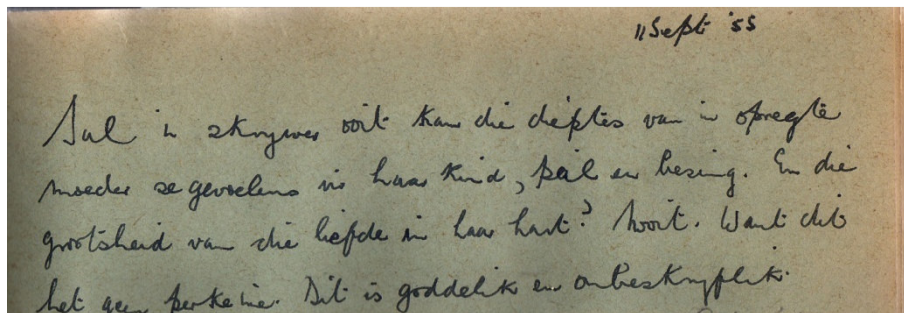 11 Sept '55
Sal 'n skrywer ooit kan die dieptes van 'n opregte
moeder se gevoelens vir haar kind, peil en besing. En die
grootsheid van die liefde in haar hart? Nooit. Want dit
het geen perke nie. Dit is goddelik en onbeskryflik.